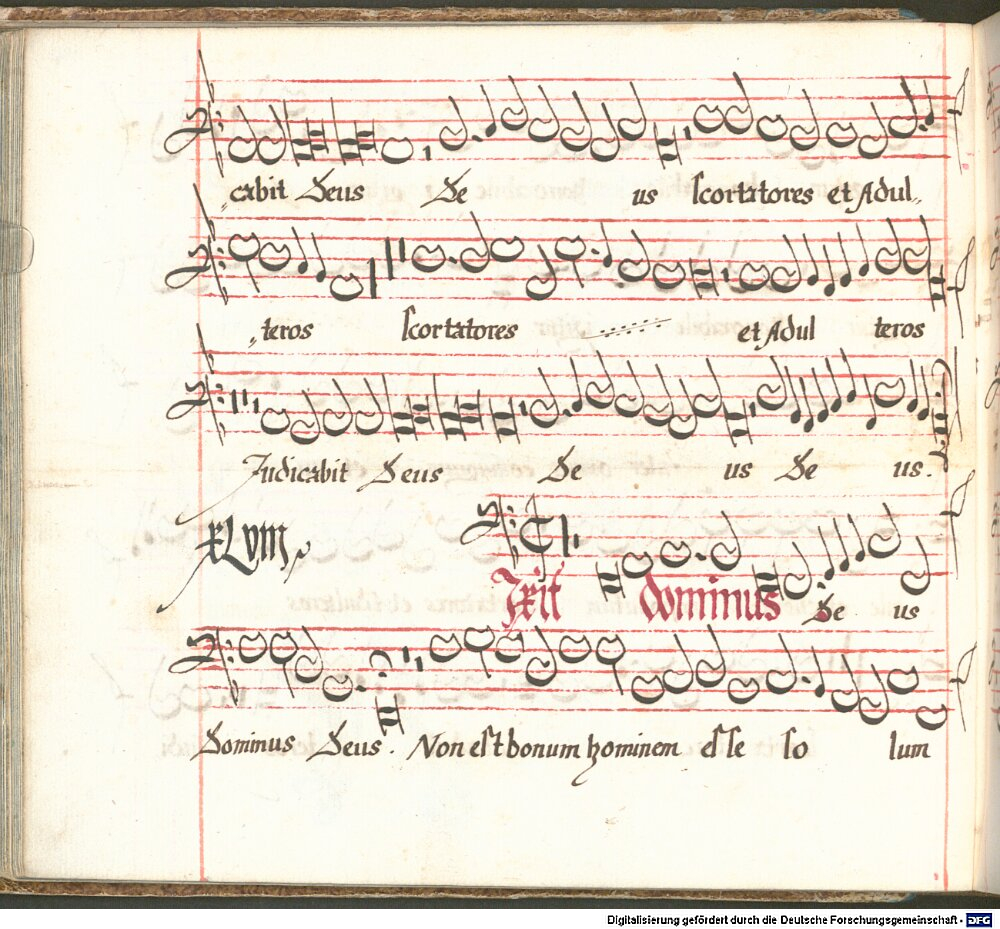 „cabit Deus De us scortatores et Adul„
„teros scortatores et Adul teros
Judicabit Deus De us De us.
XLVIII
Ixit Dominus De us
Dominus Deus. Non est bonum hominem esse so lum
Digitalisierung gefördert durch die Deutsche Forschungsgemeinschaft - DFG